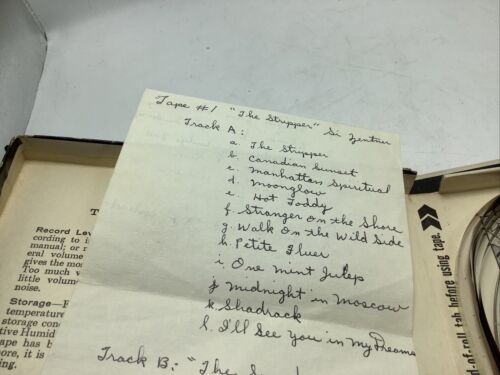 Tape #1 "The Stripper" Si Zentner
Track A:
a. The Stripper
b. Canadian Sunset
c. Manhattan Spiritual
d. Moonglow
e. Hot Toddy
f. Stranger on the Shore
g. Walk on the Wild Side
h. Petite Fluer
i. One Mint Julep
j. Midnight in Moscow
k. Shadrack
l. I'll See You in My Dreams
Track B: "The
Record Lev
cording to i
manual; or r
eral volume
gives the mos
Too much v
little volum
noise.
Storage—F
temperature
storage con
tive Humid
ape has b
ore, it is
ing.
d-of-roll tab before using tape.